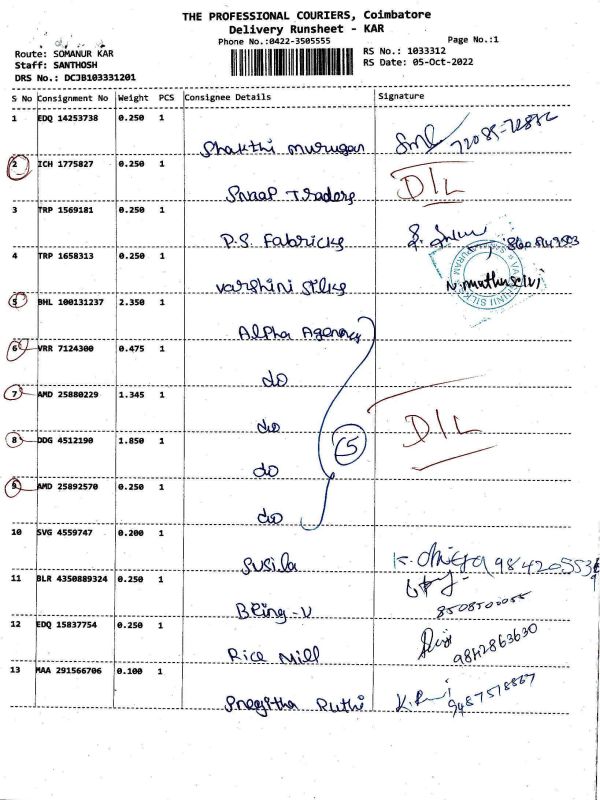 THE PROFESSIONAL COURIERS, Coimbatore
Delivery Runsheet - KAR
Phone No.:0422-3505555
Page No.:1
Route: SOMANUR KAR
RS No.: 1033312
Staff: SANTHOSH
RS Date: 05-Oct-2022
DRS No.: DCJB103331201
S No Consignment No Weight PCS Consignee Details Signature
1 EDQ 14253738 0.250 1
Shakthi Murugan
2 ICH 1775827 0.250 1
D/L
Traders
3 TRP 1569181 0.250 1
P.S. Fabricks
4 TRP 1658313 0.250 1
Varshini Silks N. muthuselvi
5 BHL 100131237 2.350 1
Alpha Agency
6 VRR 7124300 0.475 1
do
7 AMD 25880229 1.345 1
do
D/L
8 DDG 4512190 1.850 1
5
do
9 AMD 25892570 0.250 1
do
10 SVG 4559747 0.200 1
Susila
11 BLR 4350889324 0.250 1
BPing-U
12 EDQ 15837754 0.250 1
Rice Mill 9842863630
13 MAA 291566706 0.100 1
Ruthi